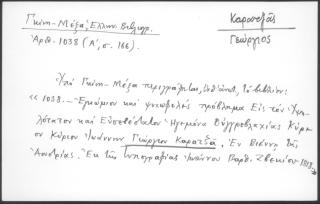 Γκίνη - Μέξα, Ελλην. Βιβλιογρ.
Ἀριθ. 1038 (Α', σ. 166).
Καρατζᾶς
Γεώργιος
Ὑπὸ Γκίνη - Μέξα περιγράφεται, τὸ βιβλίον:
« 1038. — Ἐγκώμιον καὶ γενεθλ. πρόβλημα Εἰς τὸν Ὑψη-
λότατον καὶ Εὐσεβέστατον Ἡγεμόνα Οὐγγροβλαχίας Κύρι-
ον Κύριον Ἰωάννην Γεώργιον Καρατζᾶ. Ἐν Βιέννῃ τῆς
Αουστρίας. Ἐκ τῆς Τυπογραφίας Ἰωάννου Βαρθ. Τζβεκίου 1818.»